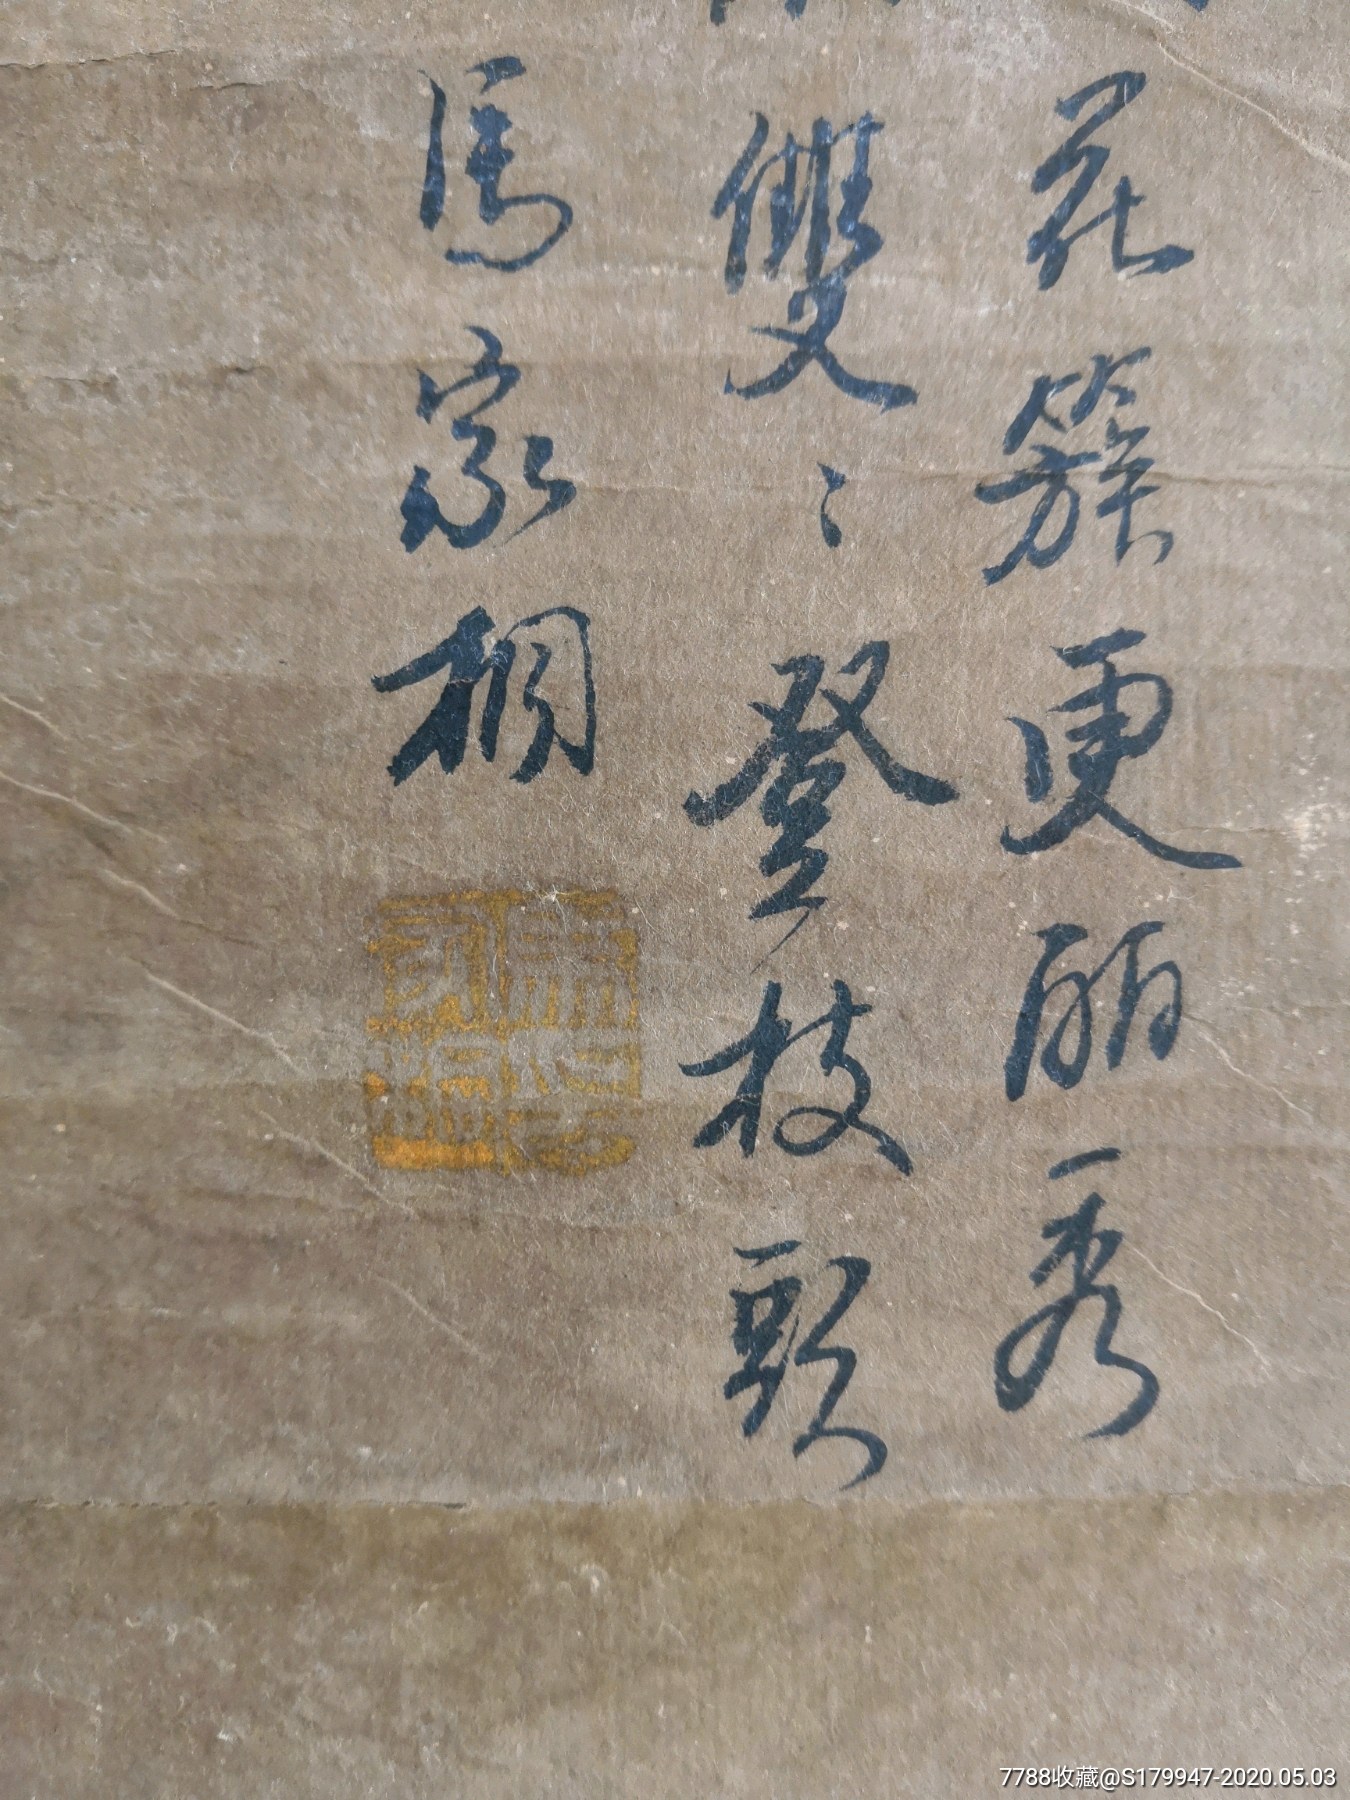 花簇更丽秀
雙〻登枝頭
馬家桐
7788收藏@S179947-2020.05.03